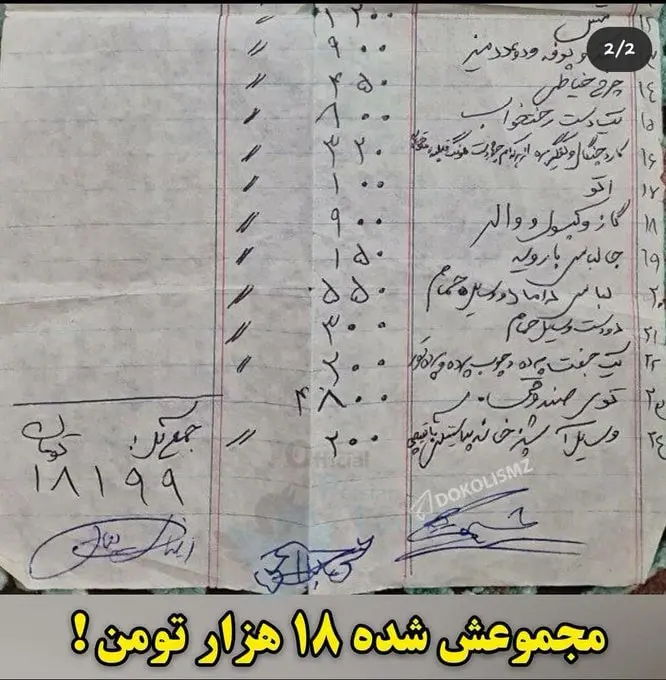 2/2
۱۲ مس ۱۲۰۰
و پوفه و دو عدد میز ۹۰۰ //
۱٤ چرخ خیاطی ۴۵۰ //
۱۵ یک دست رختخواب ۸۰۰ //
۱۶ کارد چنگال و کفگیر ۳۳۰ //
۱۷ اتو ۱۰۰ //
۱۸ گاز و کپسول و والر ۹۰۰ //
۱۹ جالباسی با رویه ۱۵۰ //
۲۰ لباس داماد و وسیله حمام ۵۵۰ //
۲۱ دو دست وسیل حمام ۳۰۰ //
۲۲ یک جفت پرده و چوب پرده و پرده تور ۲۰۰ //
توی صندوقی ۴۸۰۰
۲٤ وسیل آشپزخانه پلاستیکی ۲۰۰ //
جمع کل: تومان
۱۸۱۹۹
Official
DOKOLISMZ
مجموعش شده ۱۸ هزار تومن !